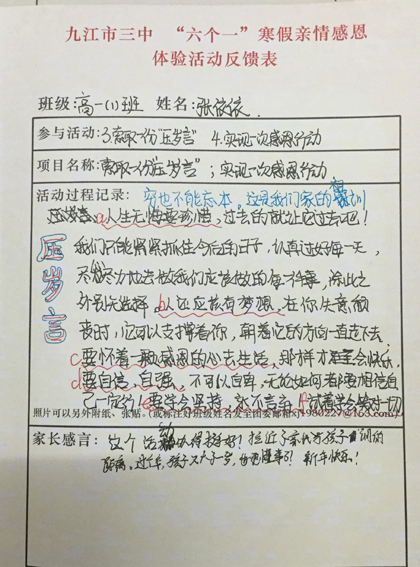 九江市三中 “六个一”寒假亲情感恩
体验活动反馈表
班级:高一(1)班 姓名:张依依
参与活动:3.索取一份“压岁言” 4.实现一次感恩行动
项目名称:索取一份“压岁言”;实现一次感恩行动
活动过程记录:穷也不能忘本。这是我们家的祖训
压岁言
压岁言:a.人生无悔要珍惜,过去的就让它过去吧!
我们只能紧紧抓住今后的日子,认真过好每一天,
尽心尽力地去做我们应当做的每一件事,除此之
外别无选择。b.人还应该有梦想,在你失意彷
徨时,它可以支撑着你,朝着它的方向一直走下去.
c.要怀着一颗感恩的心去生活,那样才会快乐.
d.要自信,自强,不可以自卑,无论如何都要相信自
己一定行!e.要学会坚持,永不言弃!f.试着学会对一切
照片可以另外附纸、张贴。(或标注好班级姓名发至团委邮箱 1980227@163.com)
家长感言:这个活动办得挺好!拉近了家长与孩子间的
距离。过年,孩子又大了一岁,也更懂事了!新年快乐!